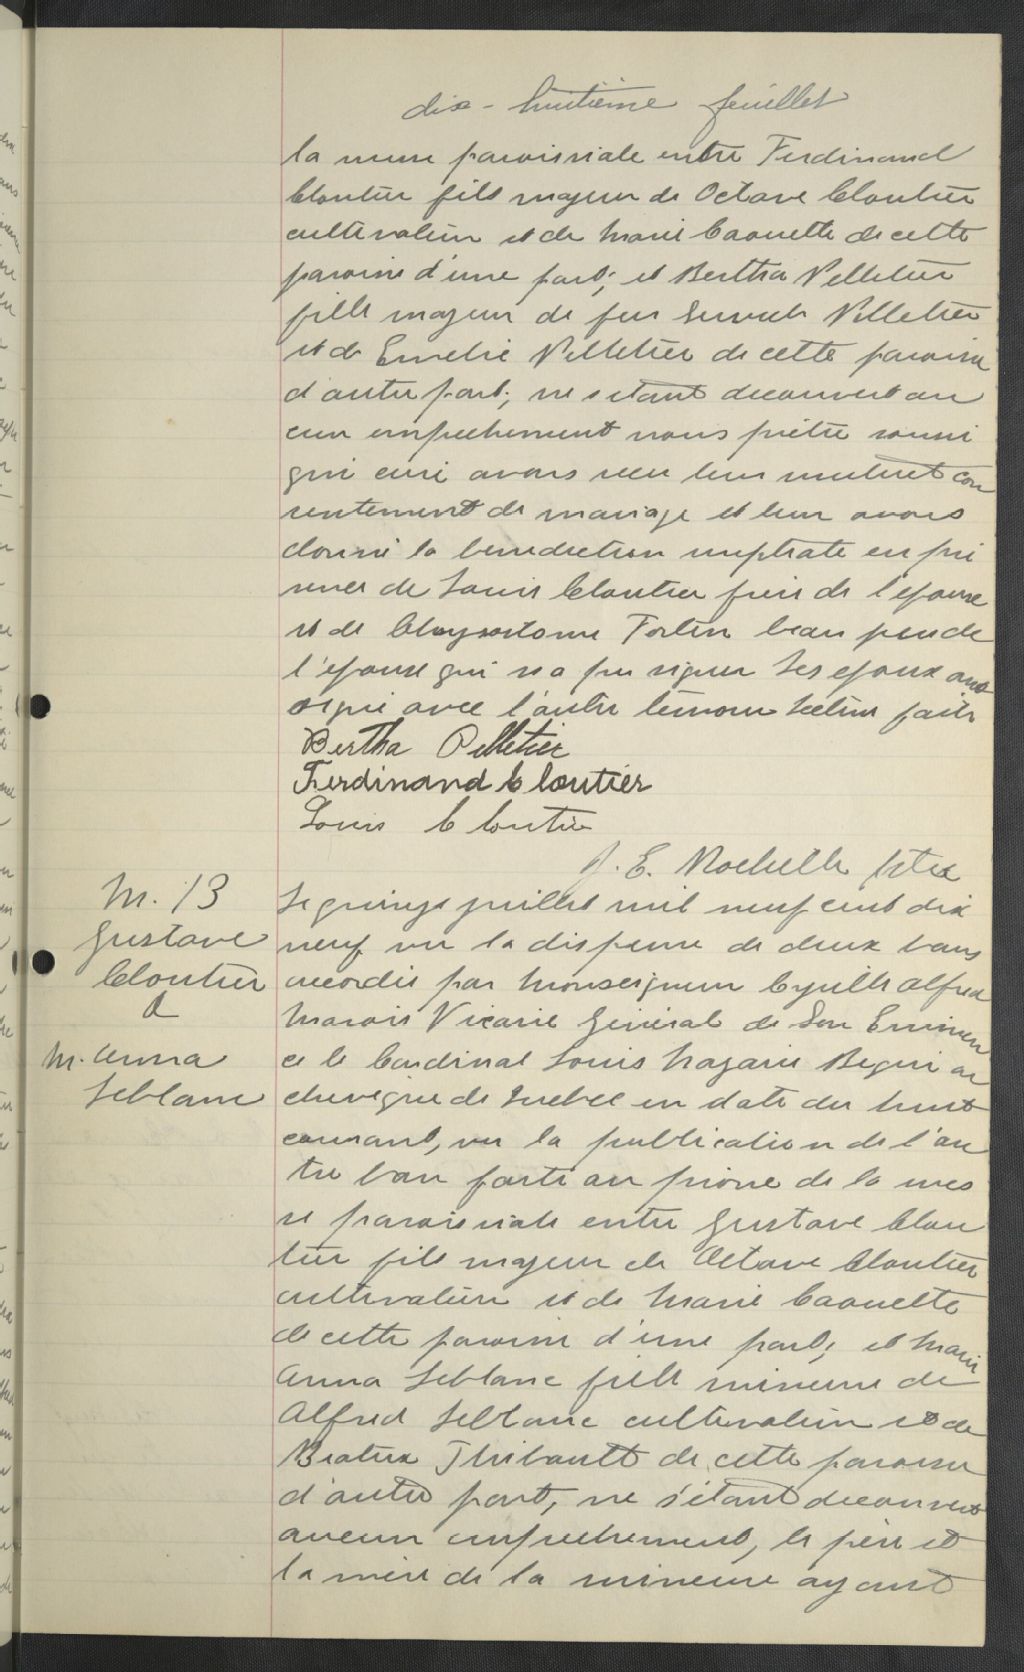 dix-huitième feuillet
la messe paroissiale entre Ferdinand
Cloutier fils majeur de Octave Cloutier
cultivateur et de Marie Caouette de cette
paroisse d'une part; et Bertha Pelletier
fille majeur de feu Pelletier
et de Emelie Pelletier de cette paroisse
d'autre part; ne s'etant decouvert au
cun empechement nous prêtre soussi
gné curé avons reçu leur mutuel con
sentement de mariage et leur avons
donné la benediction nuptiale en pré
sence de Louis Cloutier frère de l'epoux
et de Chrysostome Fortin beau père de
l'epouse qui n'a pu signer Les epoux ont
signé avec l'autre témoin Lecture faite
Bertha Pelletier
Ferdinand Cloutier
Louis Cloutier
J. E. Rochette Ptre
M. 13
Gustave
Cloutier
&
M. Anna
Leblanc
Le quinze juillet mil neuf cent dix
neuf vu la dispense de deux bans
accordée par Monseigneur Cyrille Alfred
Marois Vicaire Général de Son Eminen
ce le Cardinal Louis Nazaire Begin ar
chevêque de Quebec en date du huit
courant, vu la publication de l'au
tre ban faite au prône de la mes
se paroissiale entre Gustave Clou
tier fils majeur de Octave Cloutier
cultivateur et de Marie Caouette
de cette paroisse d'une part; et Marie
Anna Leblanc fille mineure de
Alfred Leblanc cultivateur et de
Beatrix Thibault de cette paroisse
d'autre part, ne s'étant decouvert
aucun empechement, le père et
la mère de la mineure ayant